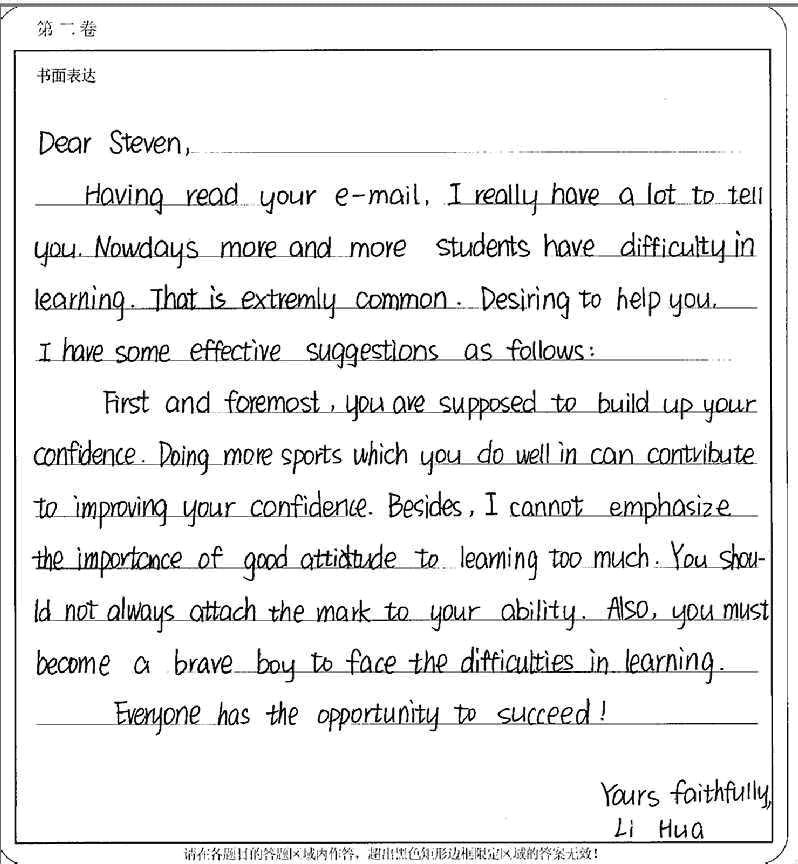 第二卷
书面表达
Dear Steven,
Having read your e-mail, I really have a lot to tell
you. Nowdays more and more students have difficulty in
learning. That is extremly common. Desiring to help you,
I have some effective suggestions as follows:
First and foremost, you are supposed to build up your
confidence. Doing more sports which you do well in can contribute
to improving your confidence. Besides, I cannot emphasize
the importance of good attidtude to learning too much. You shou-
ld not always attach the mark to your ability. Also, you must
become a brave boy to face the difficulties in learning.
Everyone has the opportunity to succeed!
Yours faithfully,
Li Hua
请在各题目的答题区域内作答，超出黑色矩形边框限定区域的答案无效！